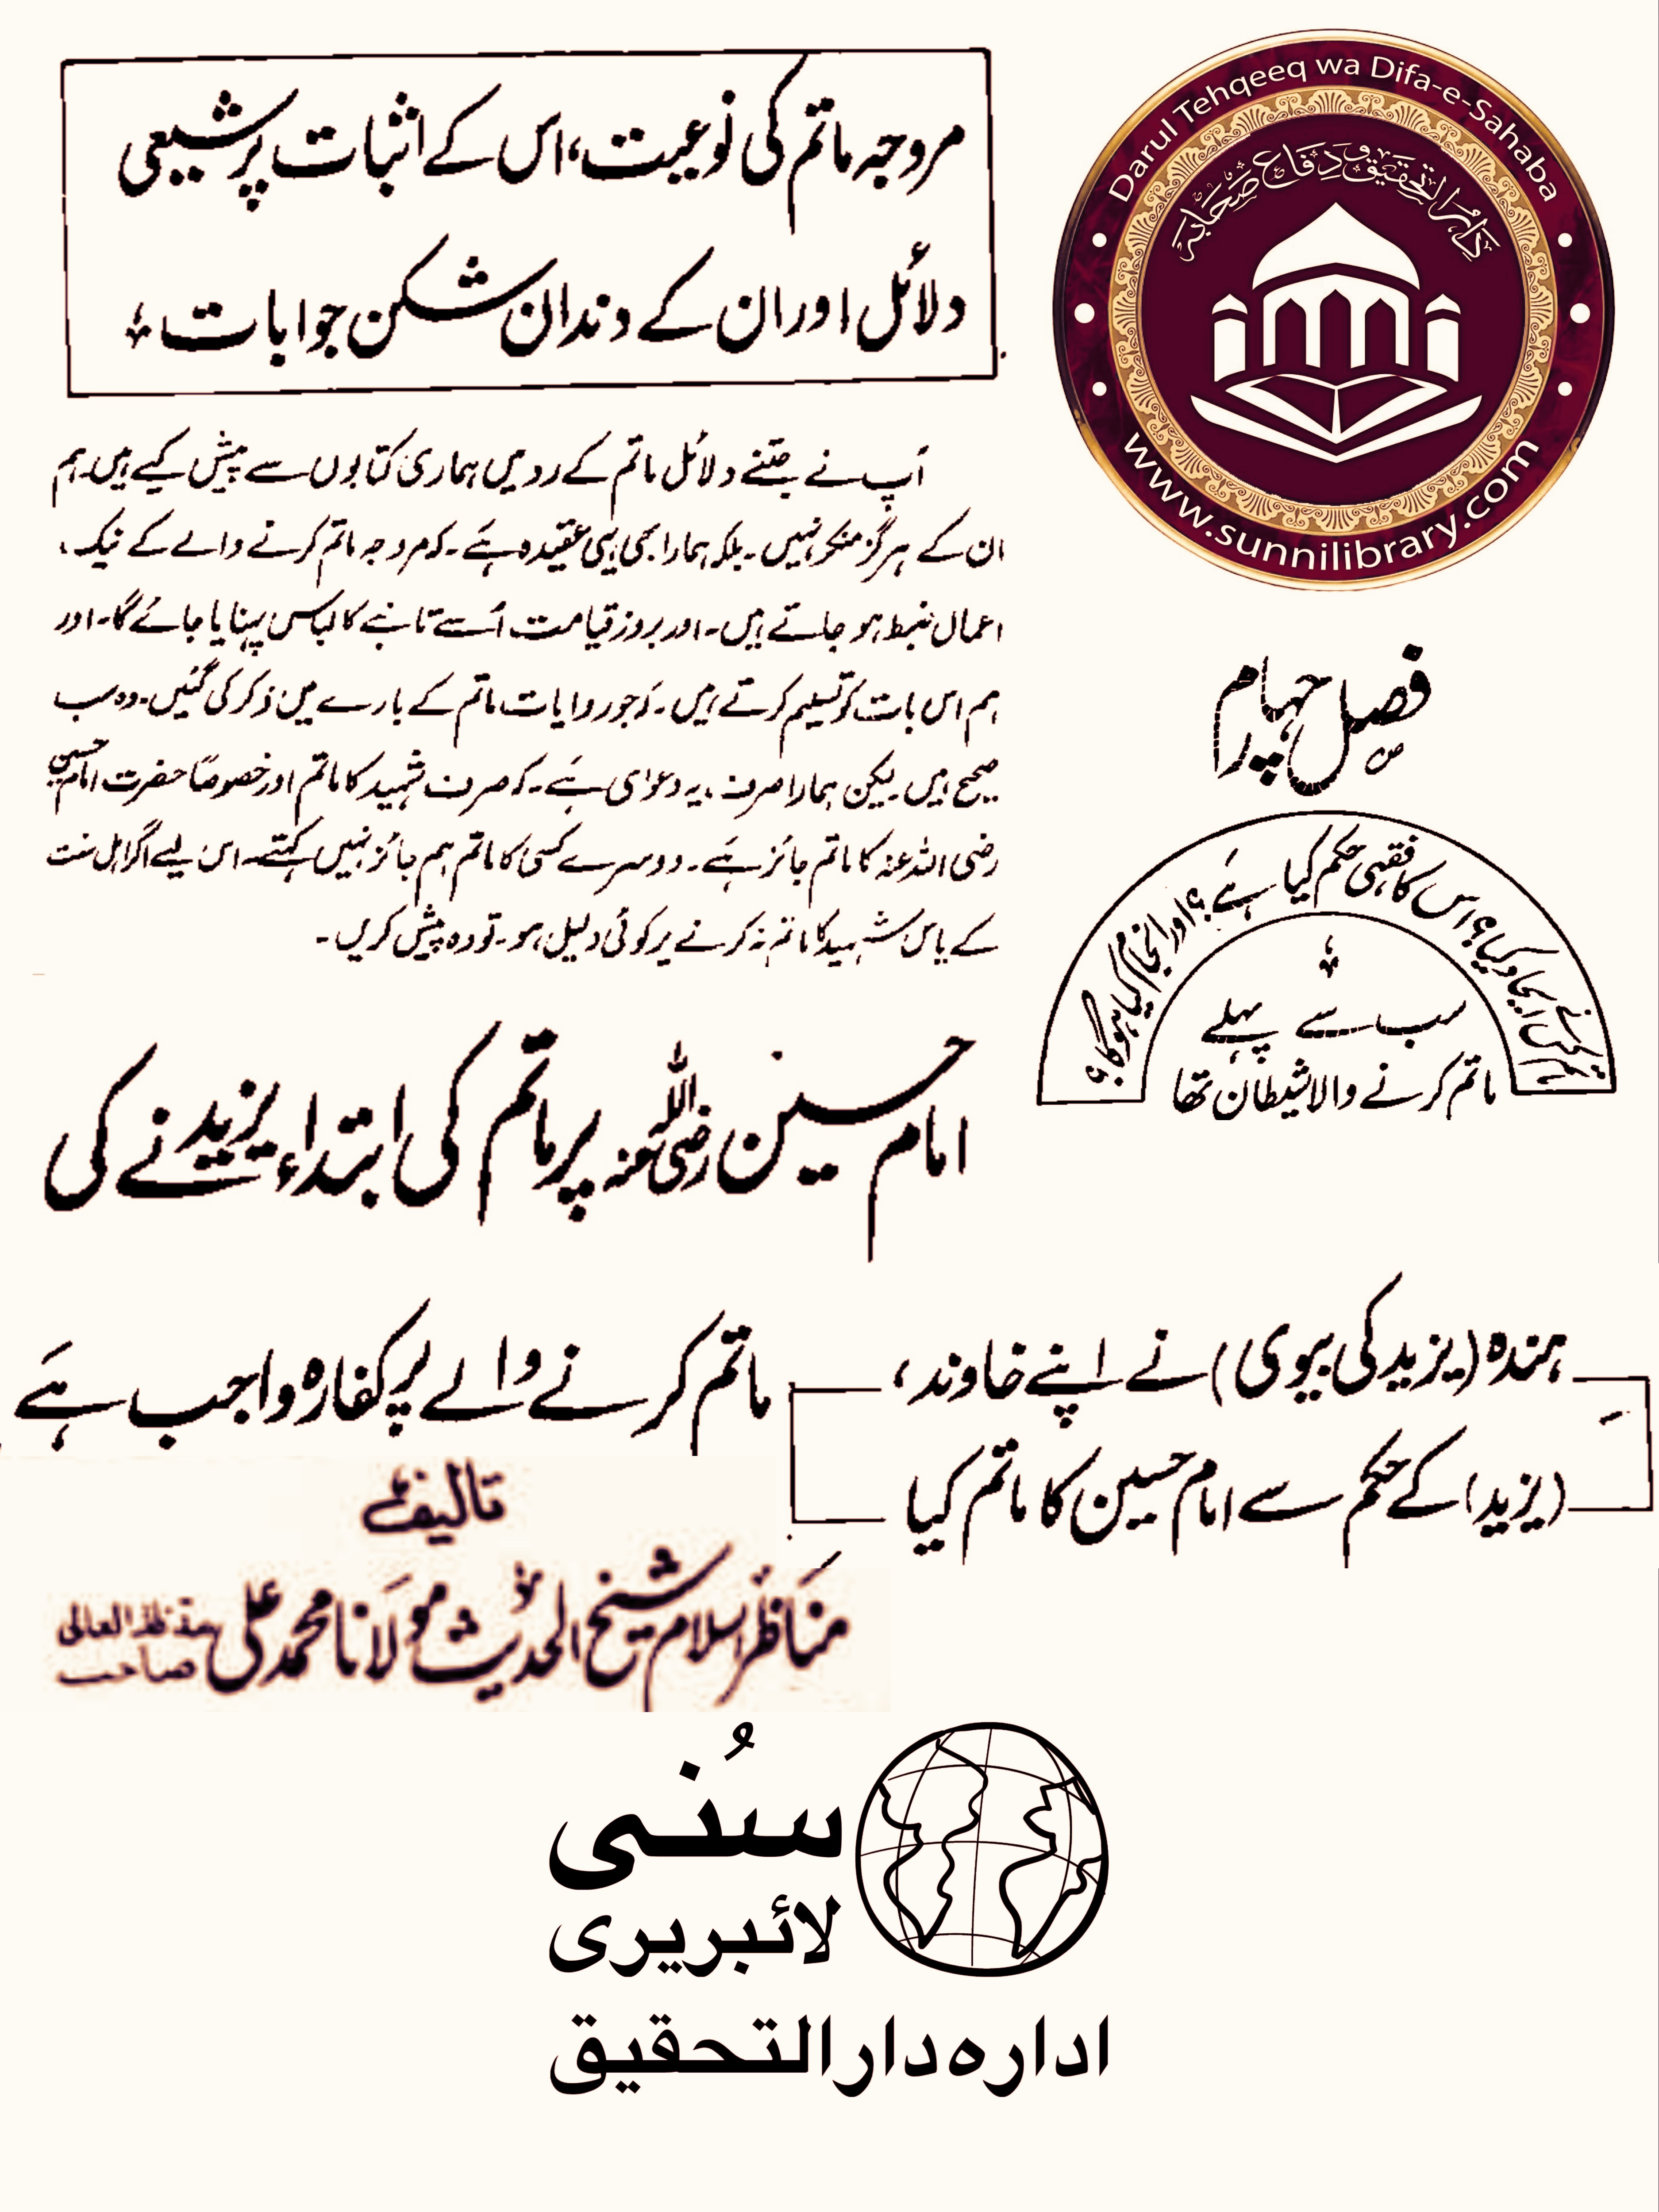 مروجہ ماتم کی نوعیت، اس کے اثبات پر شیعی
دلائل اور ان کے دندان شکن جوابات
Darul Tehqeeq wa Difa-e-Sahaba
دارالتحقیق و دفاع صحابہ
www.sunnilibrary.com
آپ نے جتنے دلائل ماتم کے رد میں ہماری کتابوں سے پیش کیے ہیں۔ ہم
ان کے ہرگز منکر نہیں۔ بلکہ ہمارا بھی یہی عقیدہ ہے۔ کہ مروجہ ماتم کرنے والے کے نیک
اعمال ضبط ہو جاتے ہیں۔ اور بروز قیامت اُسے تانبے کا لباس پہنایا جائے گا۔ اور
ہم اس بات کو تسلیم کرتے ہیں۔ کہ جو روایات ماتم کے بارے میں ذکر کی گئیں۔ وہ سب
صحیح ہیں لیکن ہمارا صرف یہ دعوٰی ہے۔ کہ صرف شہید کا ماتم اور خصوصًا حضرت امام حسین
رضی اللہ عنہ کا ماتم جائز ہے۔ دوسرے کسی کا ماتم ہم جائز نہیں کہتے۔ اس لیے اگر اہل سنت
کے پاس شہید کا ماتم نہ کرنے پر کوئی دلیل ہو۔ تو وہ پیش کریں۔
فصل چہارم
ماتم کس نے ایجاد کیا؟ اس کا فقہی حکم کیا ہے؟ اور انجام کیا ہوگا؟
سب سے پہلے
ماتم کرنے والا شیطان تھا
امام حسین رضی اللہ عنہ پر ماتم کی ابتداء یزید نے کی
ہندہ (یزید کی بیوی) نے اپنے خاوند،
(یزید) کے حکم سے امام حسین کا ماتم کیا
ماتم کرنے والے پر کفارہ واجب ہے
تالیف
مناظر اسلام شیخ الحدیث مولانا محمد علی صاحب مدظلہ العالی
سُنی
لائبریری
ادارہ دارالتحقیق